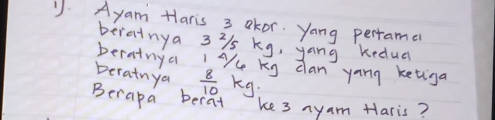 1). Ayam Haris 3 ekor. Yang pertama
beratnya 3 2/5 kg, yang kedua
beratnya 1 kg dan yang ketiga
beratnya 8/10 kg.
Berapa berat ke 3 ayam Haris?